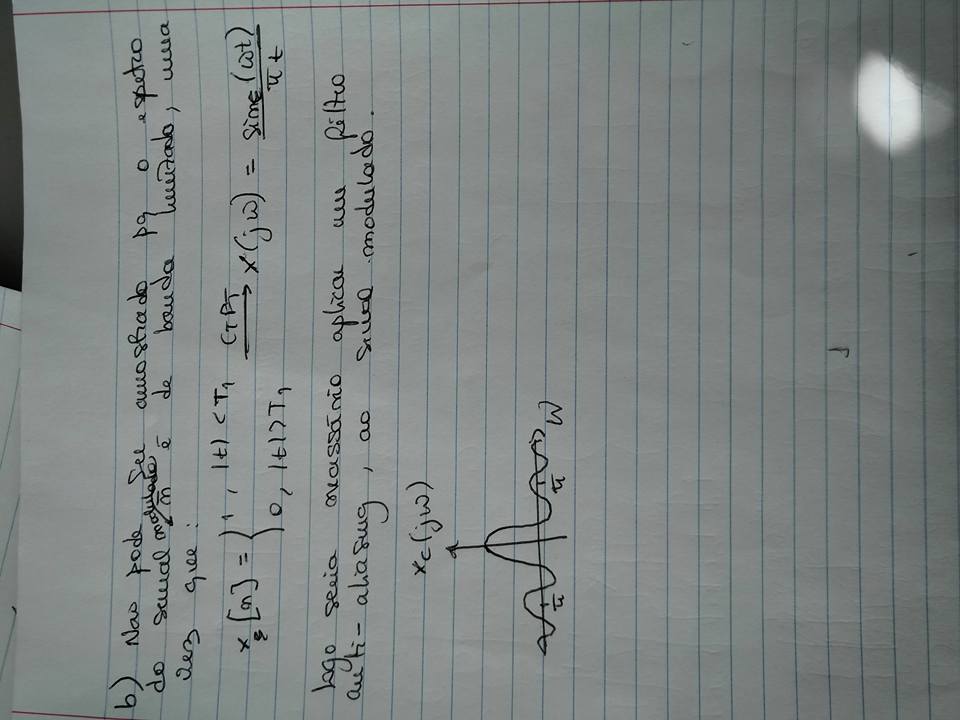 b) Nao pode ser amostrado pq o espetro
do sinal modulado ñ é de banda limitada, uma
vez que:
x[n] = { 1, |t| < T₁ CTFT→ X(jω) = sinc(ωt)/πt
0, |t| > T₁
logo seria necessário aplicar um filtro
anti-aliasing, ao sinal modulado.
xc(jω)
π π ω